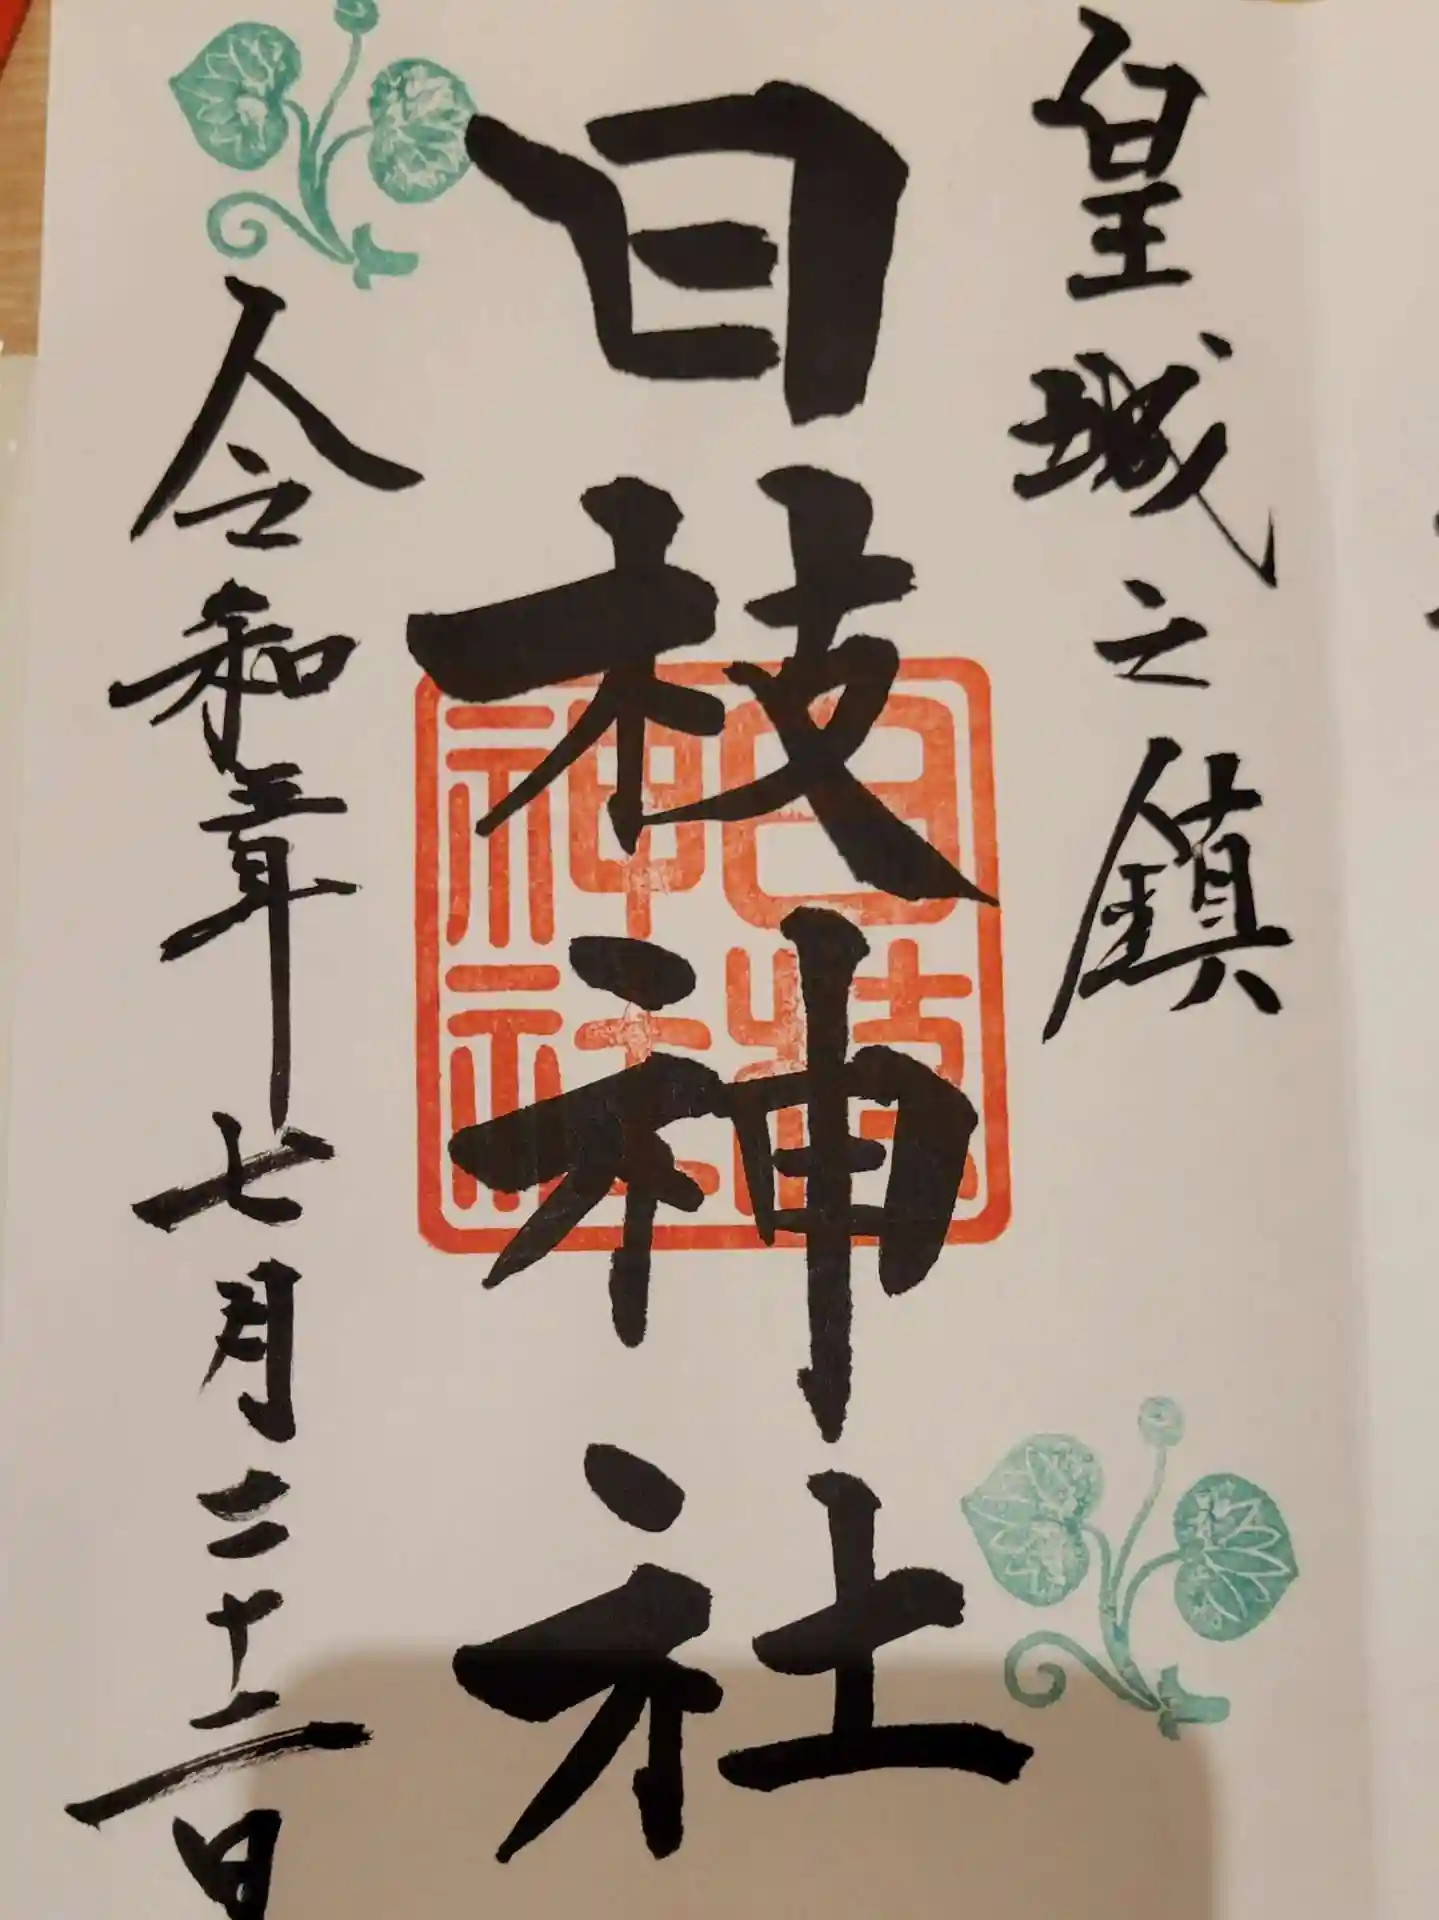 皇城之鎮
日枝神社
日枝
神社
令和三年七月二十二日